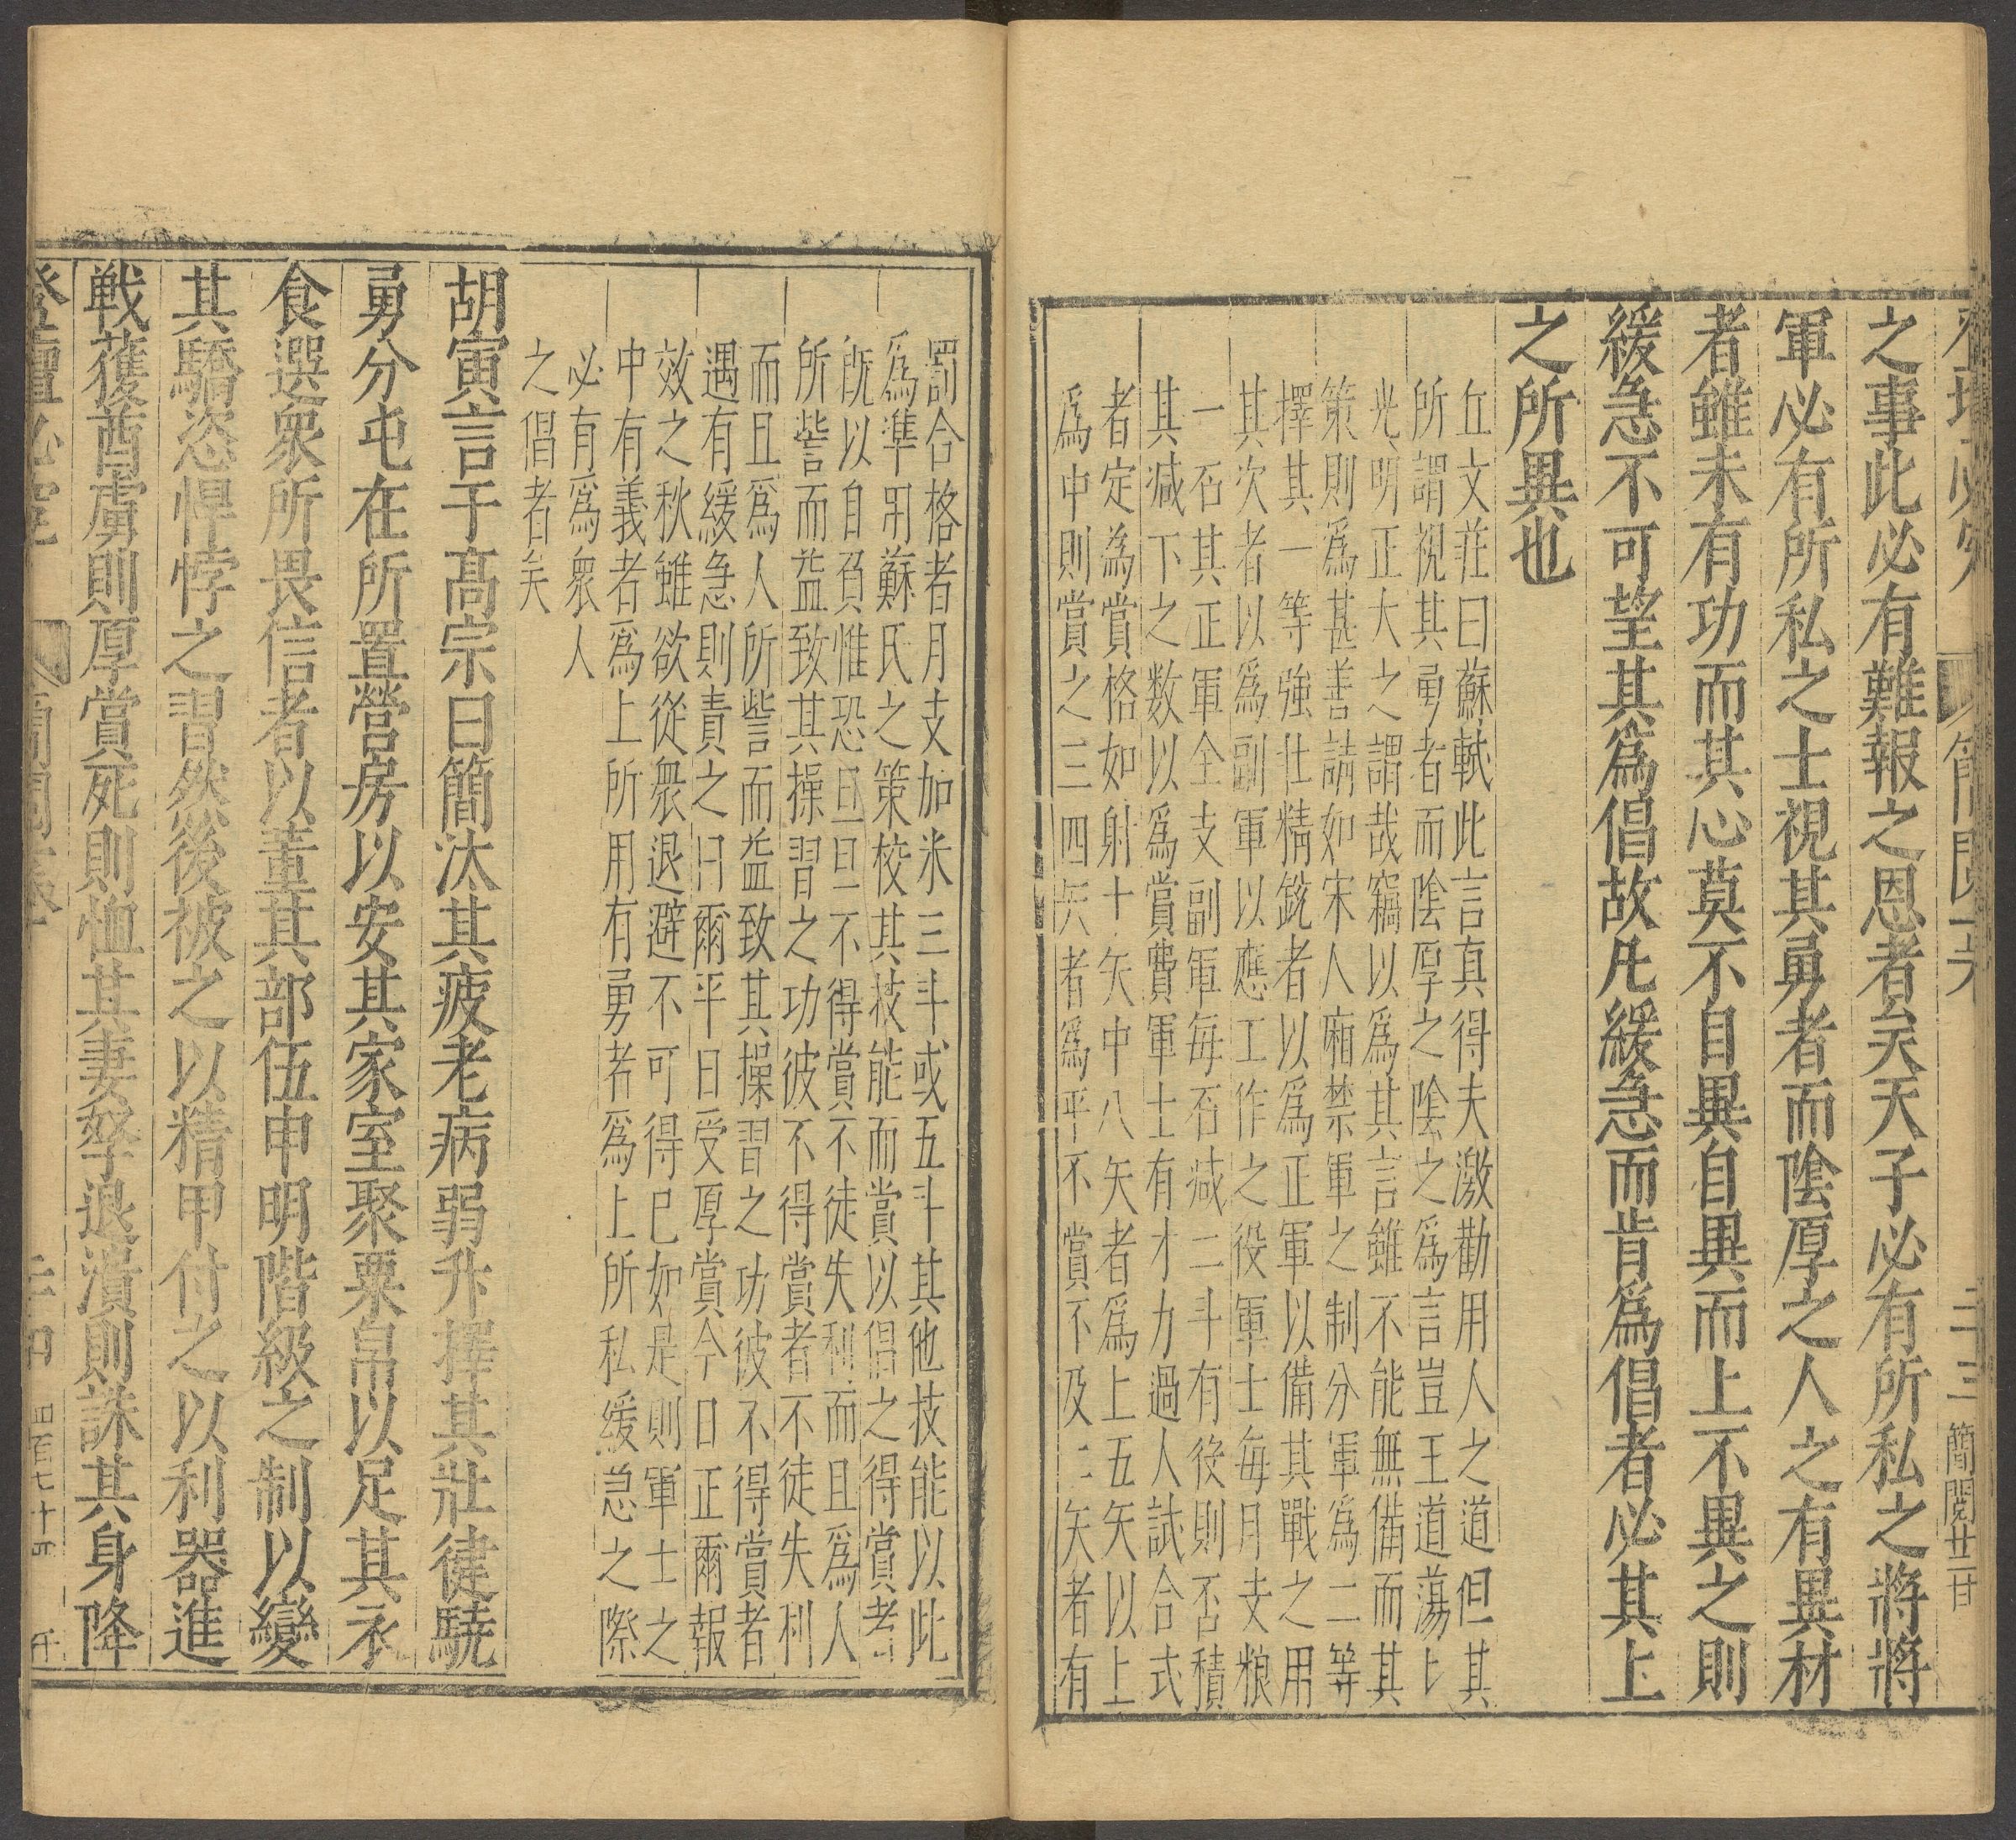 簡閱
二十三
簡閱廿二廿
之事此必有難報之恩者矣天子必有所私之將將
軍必有所私之士視其勇者而陰厚之人之有異材
者雖未有功而其心莫不自異自異而上不異之則
緩急不可望其爲倡故凡緩急而肯爲倡者必其上
之所異也
丘文莊曰蘇軾此言真得夫激勸用人之道但其
所謂視其勇者而陰厚之陰之爲言豈王道蕩〻
光明正大之謂哉竊以爲其言雖不能無備而其
策則爲甚善請如宋人廂禁軍之制分軍爲二等
擇其一等強壯精銳者以爲正軍以備其戰之用
其次者以爲副軍以應工作之役軍士每月支粮
一石其正軍全支副軍每石減二斗有役則否積
其減下之数以爲賞費軍士有才力過人試合式
者定為賞格如射十矢中八矢者爲上五矢以上
爲中則賞之三四矢者爲平不賞不及二矢者有
罰合格者月支加米三斗或五斗其他技能以此
爲準用蘇氏之策校其技能而賞以倡之得賞者
旣以自負惟恐旦旦不得賞不徒失利而且爲人
所訾而益致其操習之功彼不得賞者不徒失利
而且爲人所訾而益致其操習之功彼不得賞者
遇有緩急則責之日爾平日受厚賞今日正爾報
效之秋雖欲從衆退避不可得已如是則軍士之
中有義者爲上所用有勇者爲上所私緩急之際
必有爲衆人
之倡者矣
胡寅言于高宗曰簡汰其疲老病弱升擇其壯健驍
勇分屯在所置營房以安其家室聚粟帛以足其衣
食選衆所畏信者以董其部伍申明階級之制以變
其驕恣悍悖之習然後被之以精甲付之以利器進
戰獲酋虜則厚賞死則恤其妻孥退潰則誅其身降
登壇必究
二十四
四百七十四